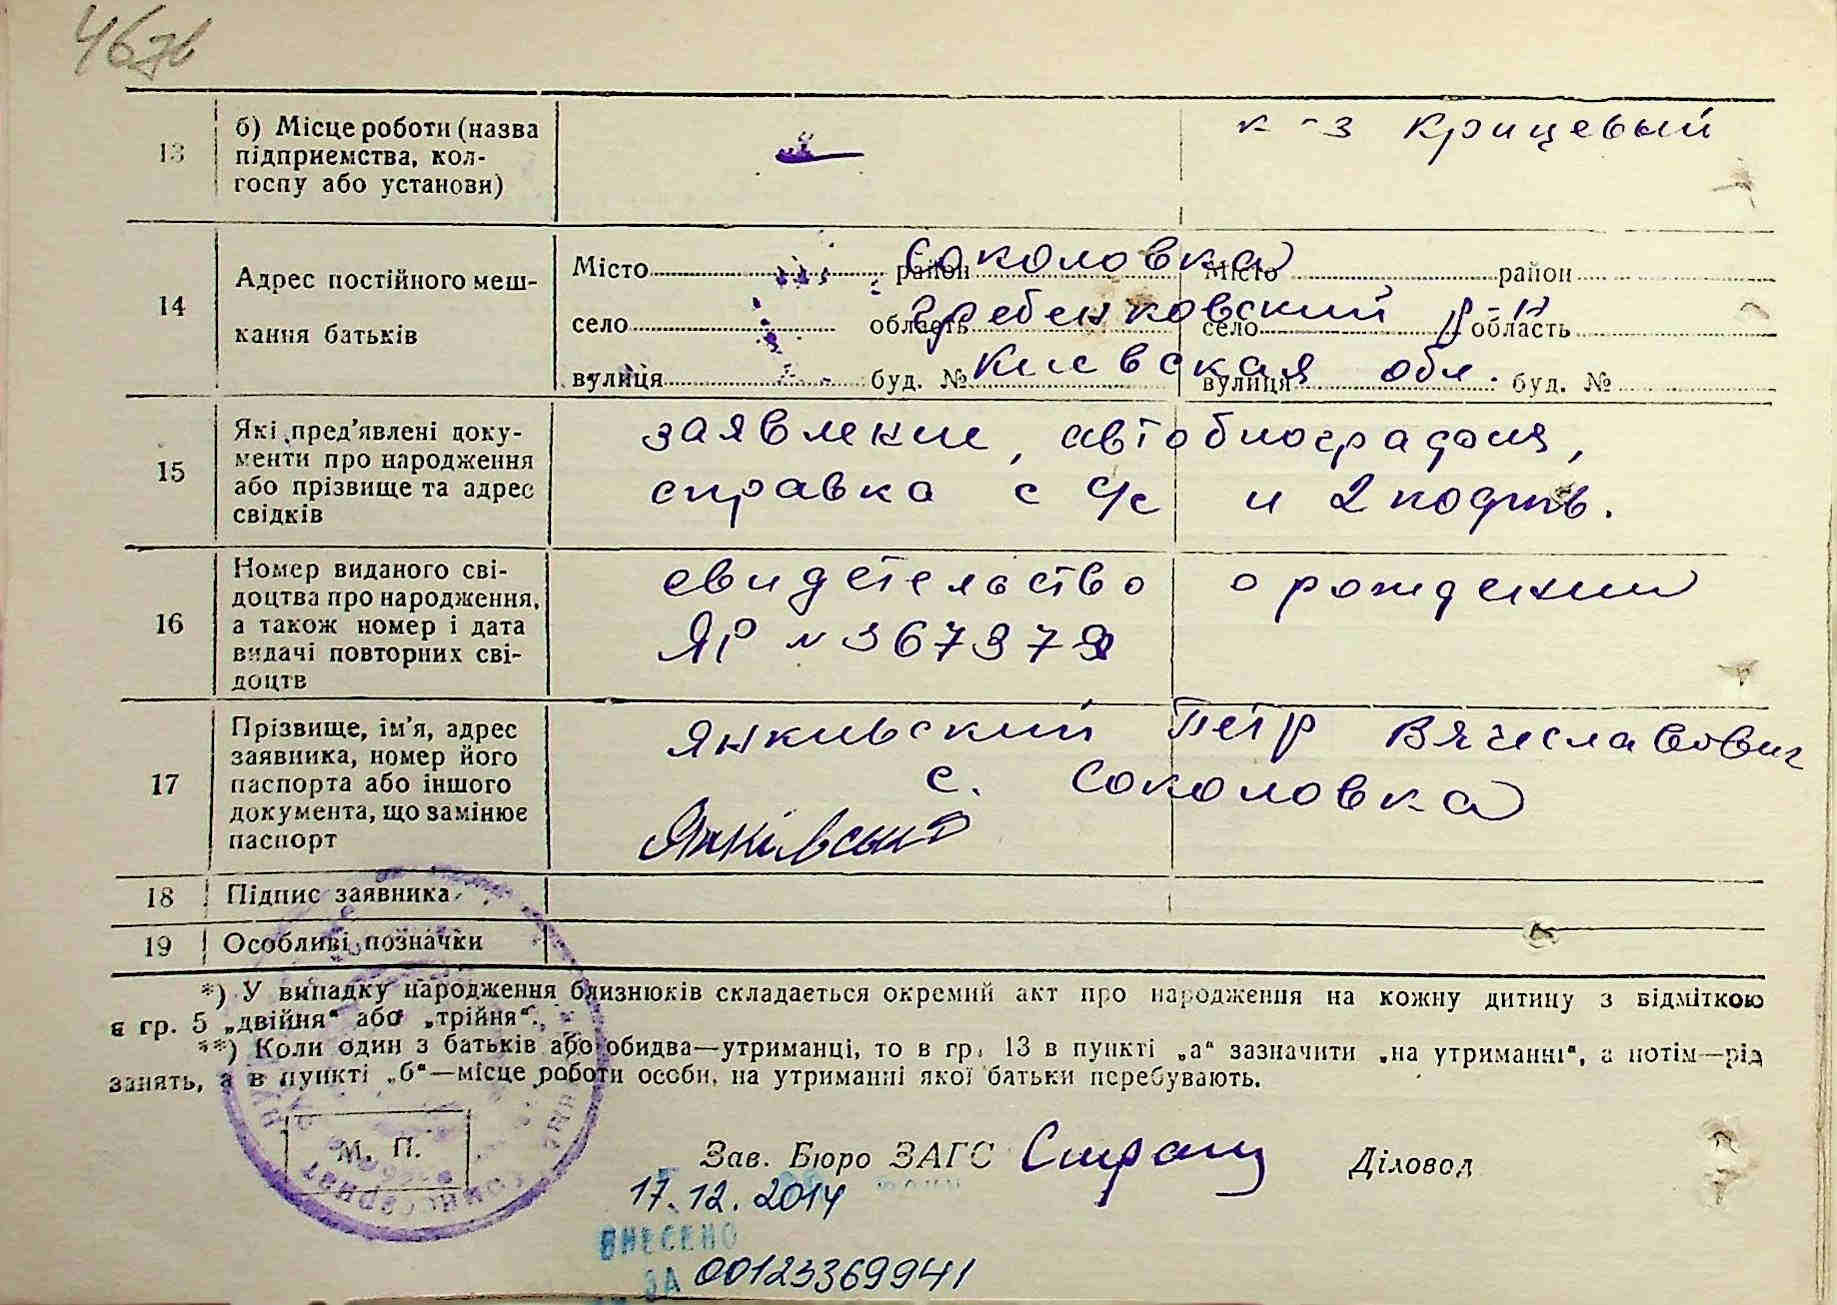 46 зв
13
б) Місце роботи (назва
підприемства, кол-
госпу або установи)
к-з Крицевый
14
Адрес постійного меш-
кання батьків
Місто район Місто район
Соколовка
село область село область
Гребенковский р-н
вулиця буд. № вулиця буд. №
Киевская обл.
15
Які пред'явлені доку-
менти про народження
або прізвище та адрес
свідків
заявление, автобиография,
справка с с/с и 2 подтв.
16
Номер виданого сві-
доцтва про народження,
а також номер і дата
видачі повторних сві-
доцтв
свидетельство о рождении
ЯР №
17
Прізвище, ім'я, адрес
заявника, номер його
паспорта або іншого
документа, що замінює
паспорт
Янкивский Петр Вячеславович
с. Соколовка
Янківський
18 Підпис заявника
19 Особливі позначки
*) У випадку народження близнюків складається окремий акт про народження на кожну дитину з відміткою
в гр. 5 „двійня" або „трійня".
**) Коли один з батьків або обидва—утриманці, то в гр. 13 в пункті „а" зазначити „на утриманні", а потім—рід
занять, а в пункті „б"—місце роботи особи, на утриманні якої батьки перебувають.
М. П.
Зав. Бюро ЗАГС Діловод
17.12.2014
ВНЕСЕНО
ЗА 00123369941